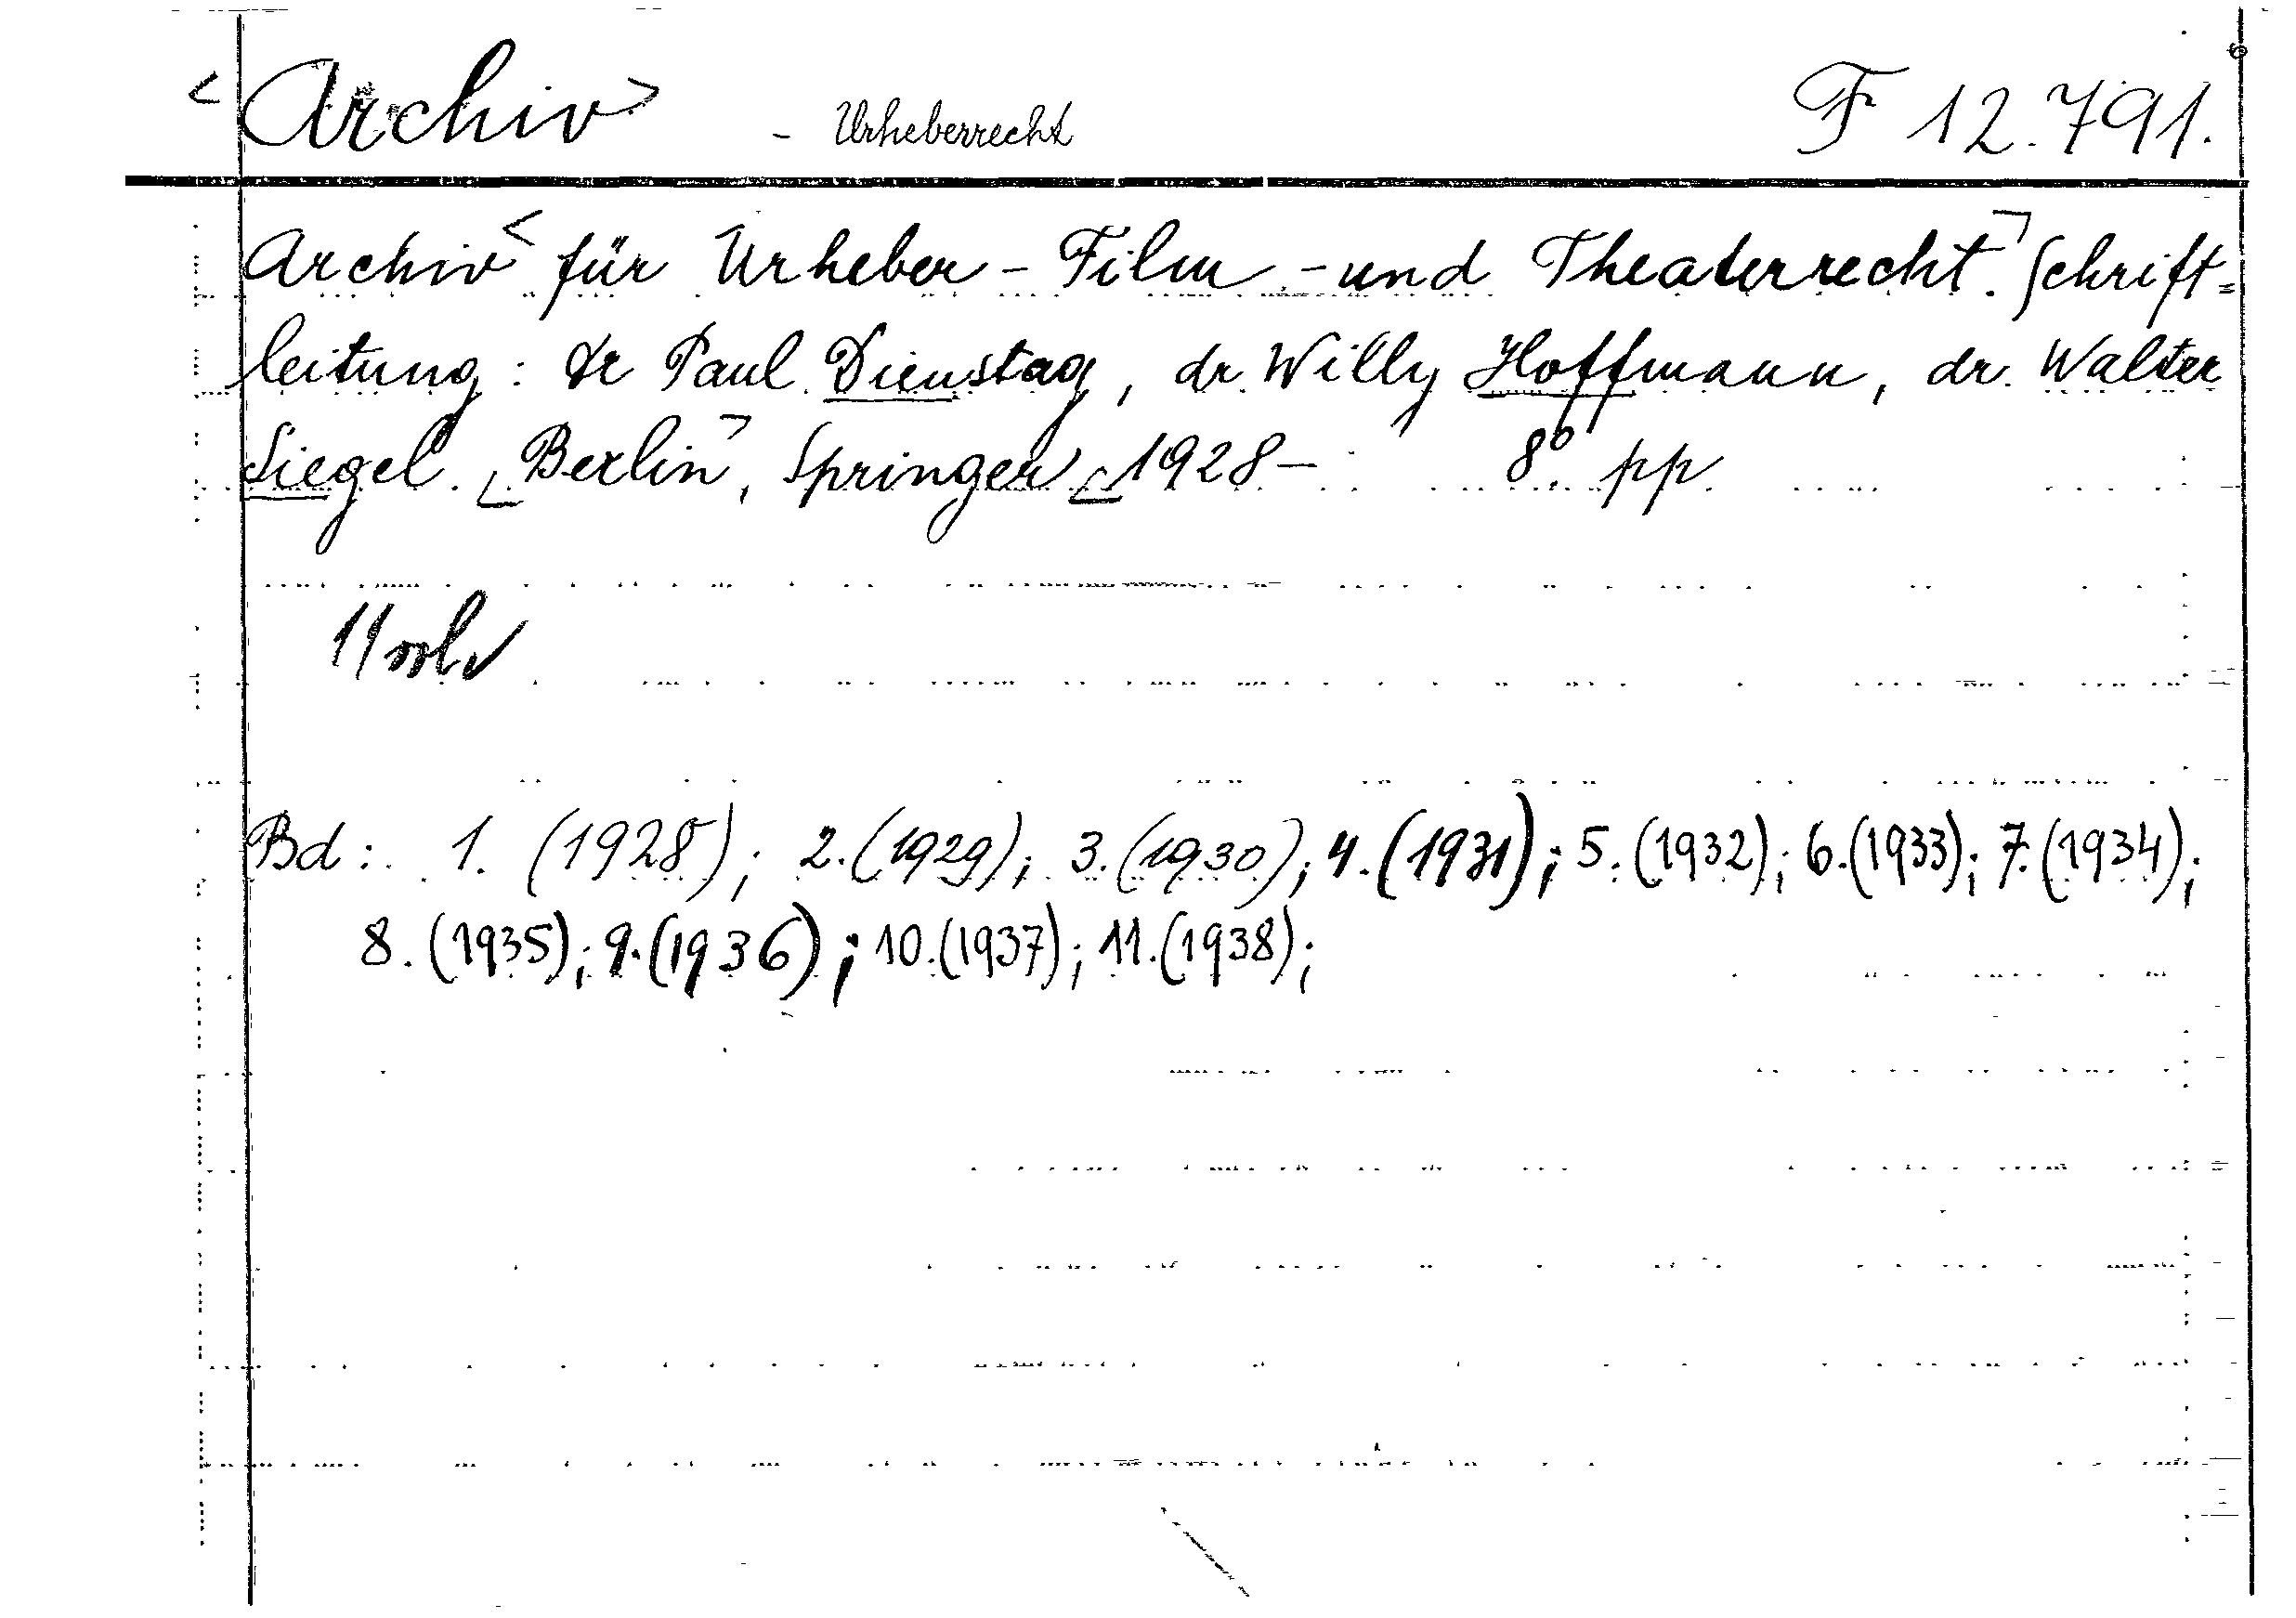 <Archiv> - Urheberrecht F 12.791.
Archiv< für Urheber - Film - und Theaterrecht. Schrift=
leitung: Dr Paul Dienstag, dr. Willy Hoffmann, dr. Walter
Siegel. Berlin, Springer 1928- 8°. pp.
11 vol
Bd: 1. (1928); 2. (1929); 3. (1930); 4. (1931); 5. (1932); 6. (1933); 7. (1934);
8. (1935); 9. (1936); 10. (1937); 11. (1938);